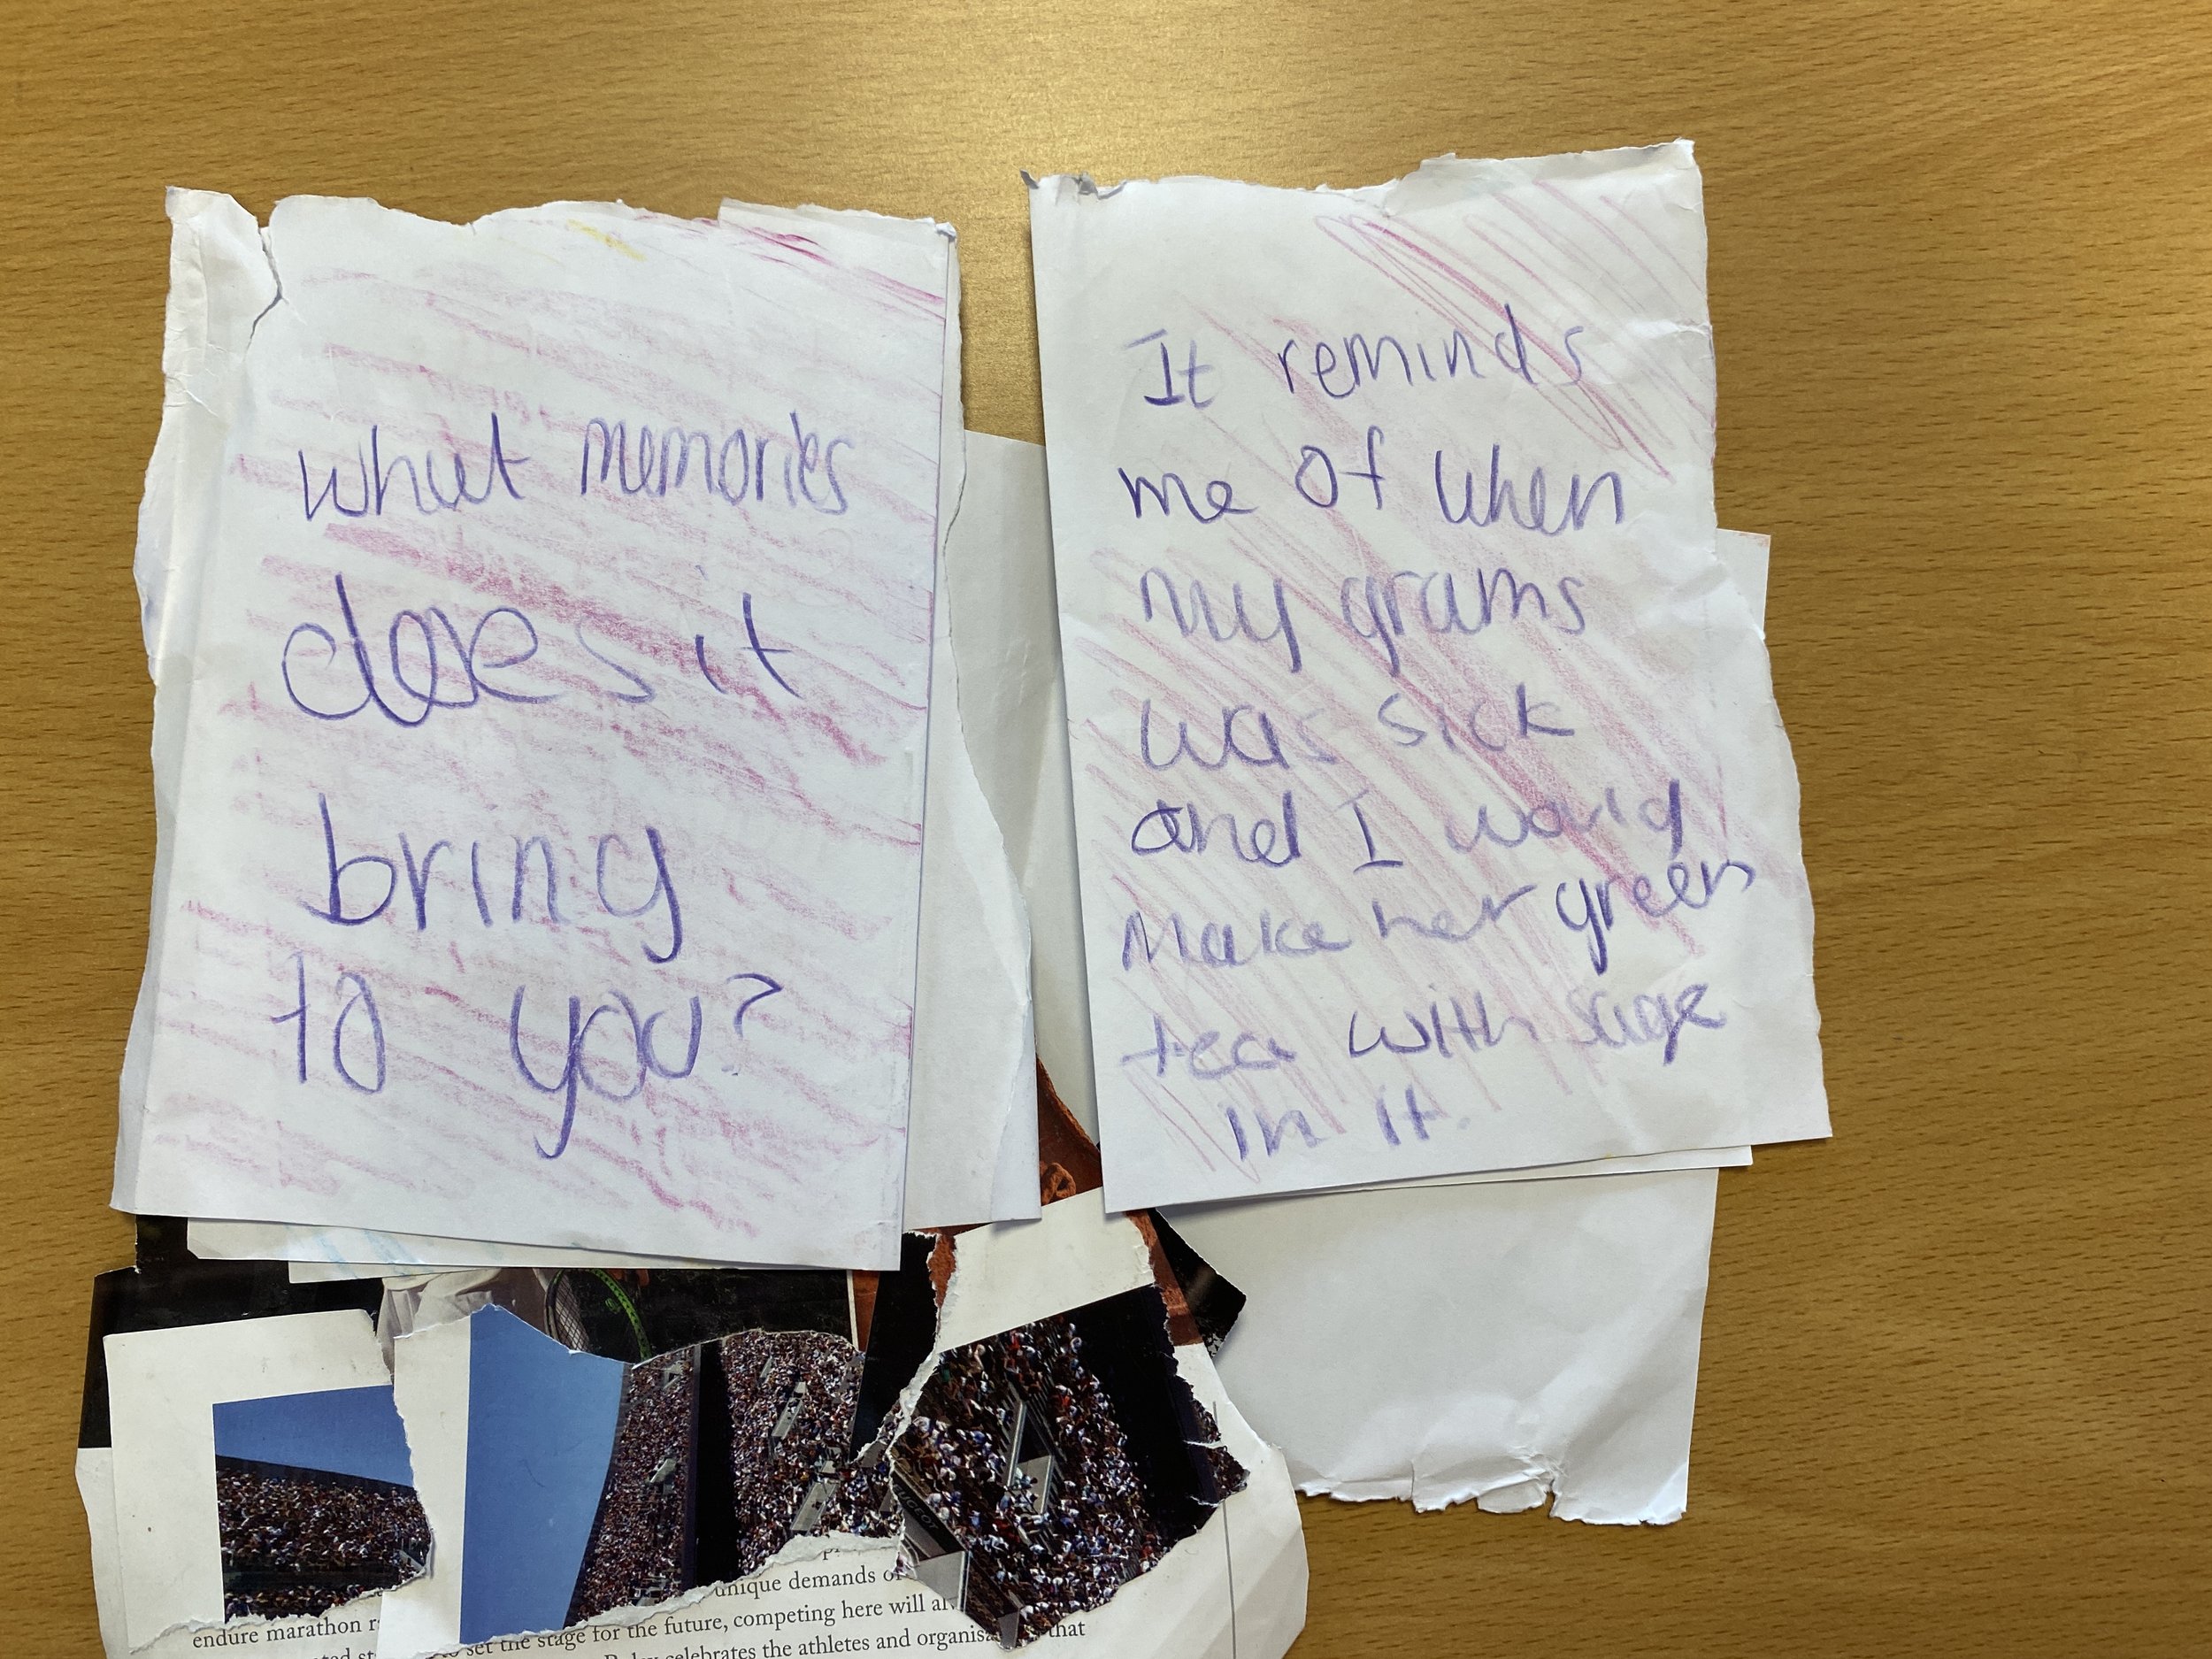 what memories
does it
bring
to you?
It reminds
me of when
my grams
was sick
and I would
Make her green
tea with sage
in it.
unique demands of
endure marathon
to set the stage for the future, competing here will
celebrates the athletes and organisa
that